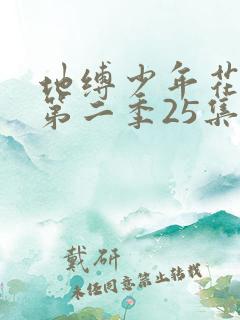 地缚少年花
第二季25集
戴研
未经同意禁止转载